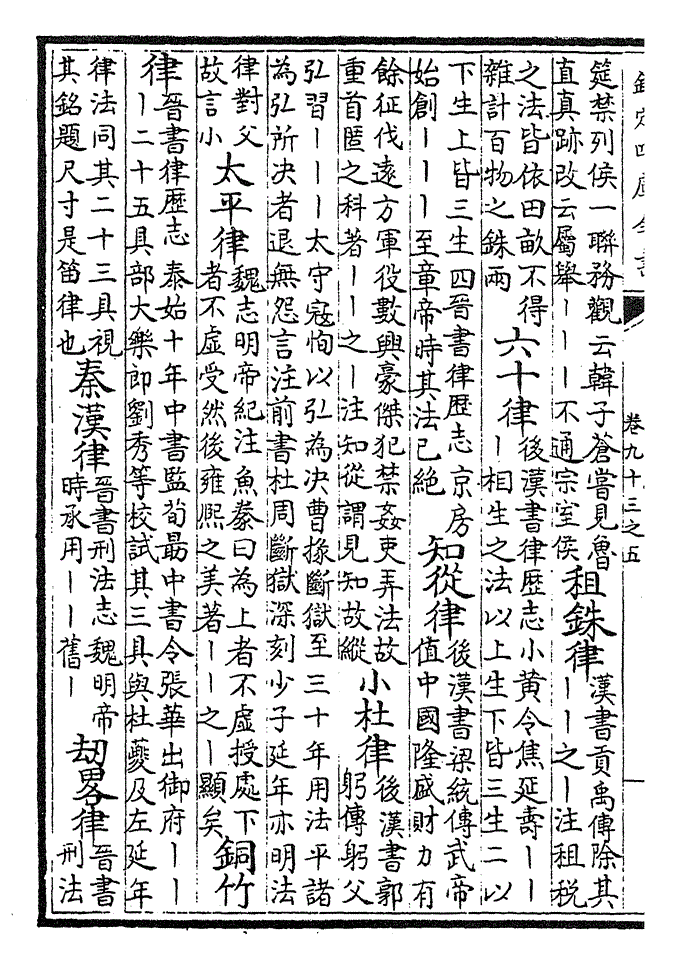 欽定四庫全書
卷九十三之五
筵禁列侯一聯務觀云韓子蒼嘗見魯
直真跡改云屬舉丨丨丨不通宗室侯
租銖律
漢書貢禹傳除其
丨丨之丨注租税
之法皆依田畝不得
雜計百物之銖兩
六十律
後漢書律歷志小黄令焦延壽丨丨
丨相生之法以上生下皆三生二以
下生上皆三生四晉書律歷志京房
始創丨丨丨至章帝時其法已絶
知從律
後漢書梁統傳武帝
值中國隆盛財力有
餘征伐遠方軍役數興豪傑犯禁姦吏弄法故
重首匿之科著丨丨之丨注知從謂見知故縱
小杜律
後漢書郭
躬傳躬父
弘習丨丨丨太守寇恂以弘為决曹掾斷獄至三十年用法平諸
為弘所决者退無怨言注前書杜周斷獄深刻少子延年亦明法
律對父
故言小
太平律
魏志明帝紀注魚豢曰為上者不虚授處下
者不虚受然後雍熙之美著丨丨之丨顯矣
銅竹
律
晉書律歷志泰始十年中書監荀最中書令張華出御府丨丨
丨二十五具部大樂郎劉秀等校試其三具與杜夔及左延年
律法同其二十三具視
其銘題尺寸是笛律也
秦漢律
晉書刑法志魏明帝
時承用丨丨舊丨
劫畧律
晉書
刑法